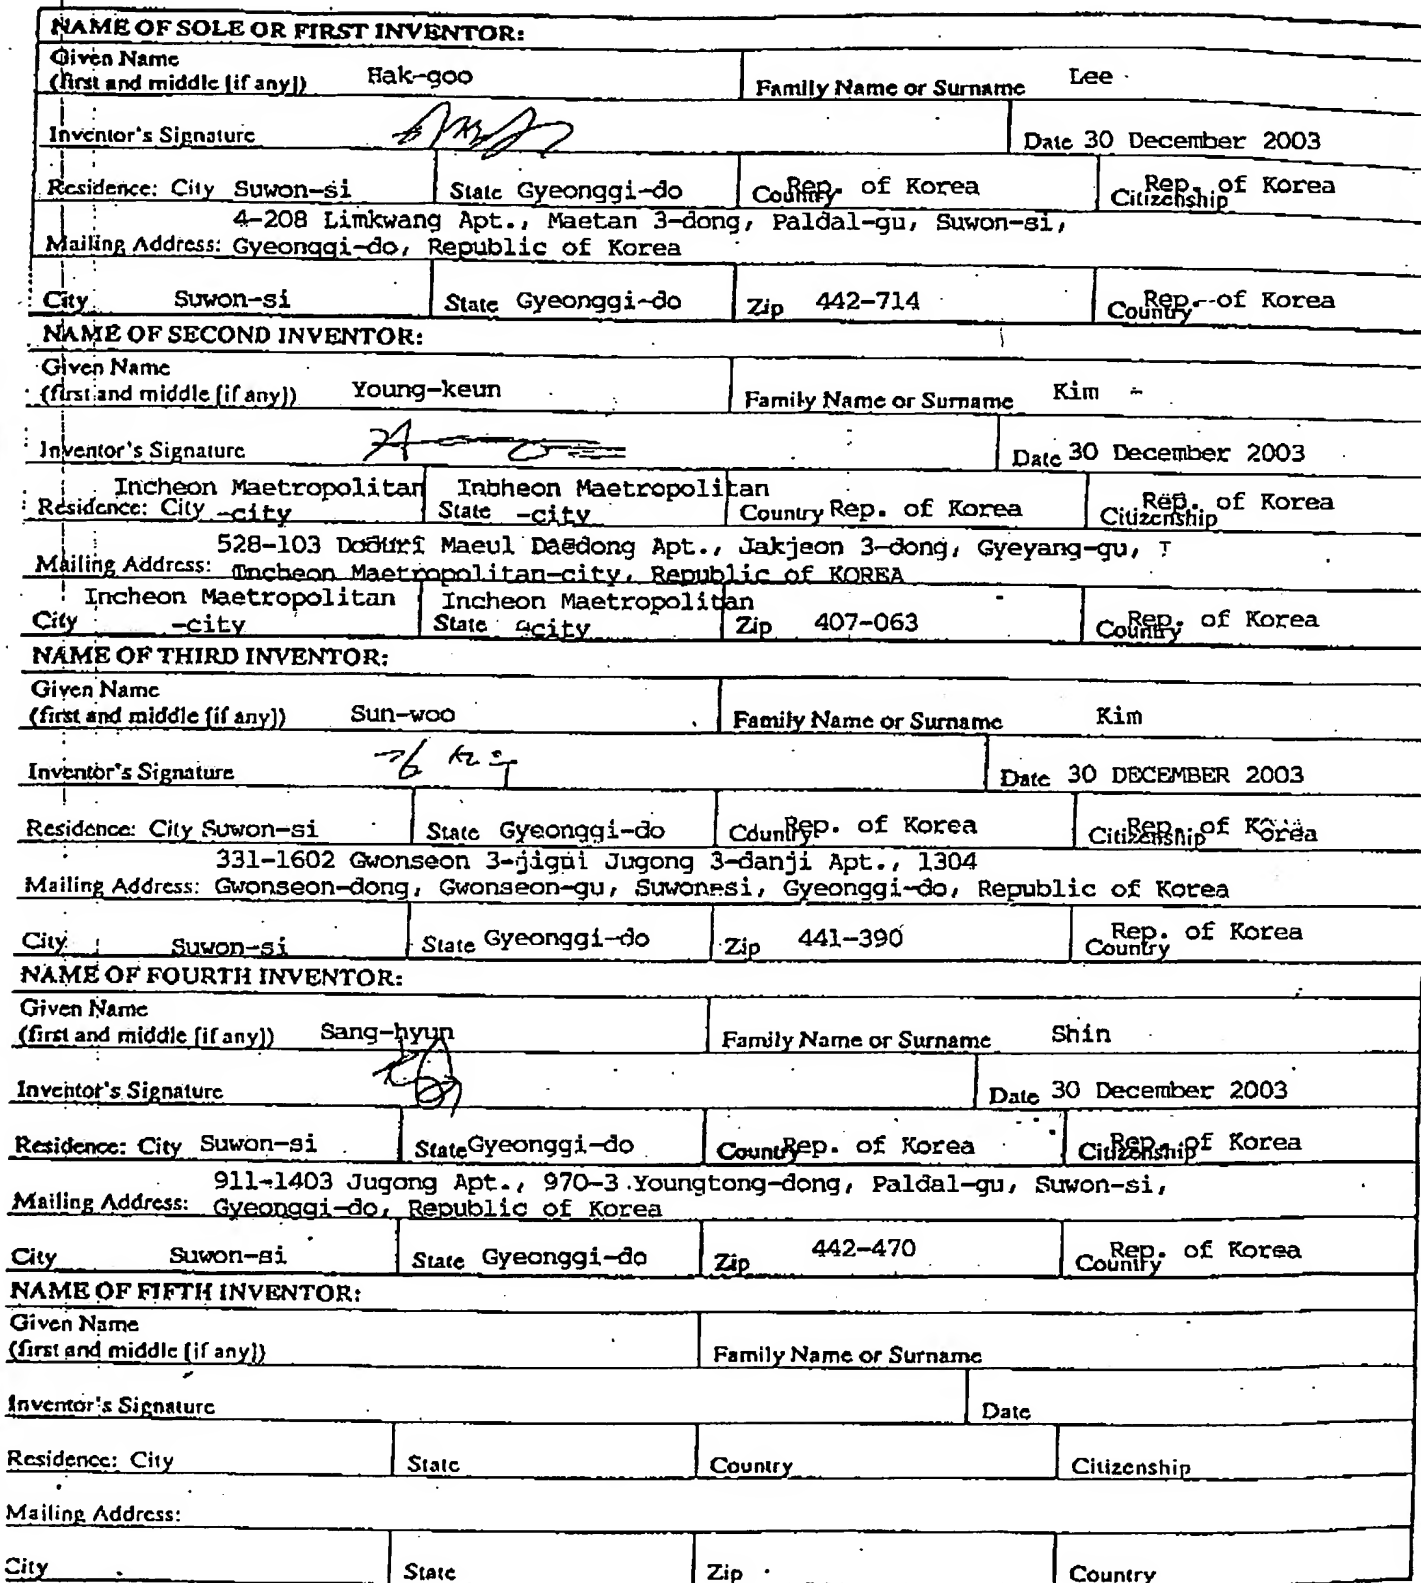 NAME OF SOLE OR FIRST INVENTOR:
Given Name
(first and middle [if any]) Hak-goo Family Name or Surname Lee
Inventor's Signature Date 30 December 2003
Residence: City Suwon-si State Gyeonggi-do Country Rep. of Korea Citizenship Rep. of Korea
4-208 Limkwang Apt., Maetan 3-dong, Paldal-gu, Suwon-si,
Mailing Address: Gyeonggi-do, Republic of Korea
City Suwon-si State Gyeonggi-do Zip 442-714 Country Rep. of Korea
NAME OF SECOND INVENTOR:
Given Name
(first and middle [if any]) Young-keun Family Name or Surname Kim
Inventor's Signature Date 30 December 2003
Incheon Maetropolitan Inbheon Maetropolitan
Residence: City -city State -city Country Rep. of Korea Citizenship Rep. of Korea
528-103 Doduri Maeul Daedong Apt., Jakjeon 3-dong, Gyeyang-gu, I
Mailing Address: Incheon Maetropolitan-city, Republic of KOREA
Incheon Maetropolitan Incheon Maetropolitan
City -city State -city Zip 407-063 Country Rep. of Korea
NAME OF THIRD INVENTOR:
Given Name
(first and middle [if any]) Sun-woo Family Name or Surname Kim
Inventor's Signature 김 선우 Date 30 DECEMBER 2003
Residence: City Suwon-si State Gyeonggi-do Country Rep. of Korea Citizenship Rep. of Korea
331-1602 Gwonseon 3-jigui Jugong 3-danji Apt., 1304
Mailing Address: Gwonseon-dong, Gwonseon-gu, Suwon-si, Gyeonggi-do, Republic of Korea
City Suwon-si State Gyeonggi-do Zip 441-390 Country Rep. of Korea
NAME OF FOURTH INVENTOR:
Given Name
(first and middle [if any]) Sang-hyun Family Name or Surname Shin
Inventor's Signature Date 30 December 2003
Residence: City Suwon-si State Gyeonggi-do Country Rep. of Korea Citizenship Rep. of Korea
911-1403 Jugong Apt., 970-3 Youngtong-dong, Paldal-gu, Suwon-si,
Mailing Address: Gyeonggi-do, Republic of Korea
City Suwon-si State Gyeonggi-do Zip 442-470 Country Rep. of Korea
NAME OF FIFTH INVENTOR:
Given Name
(first and middle [if any]) Family Name or Surname
Inventor's Signature Date
Residence: City State Country Citizenship
Mailing Address:
City State Zip Country